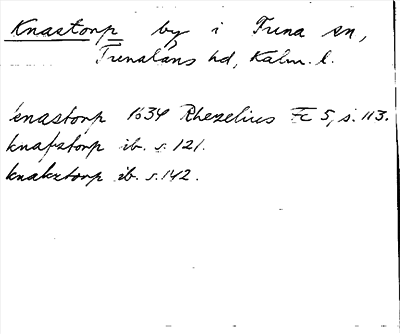 Knastorp by i Runa sn,
Runalåns hd, Kalm. l.
knastorp 1634 Rhezelius Fc 5, s. 113.
knapstorp ib. s. 121.
knakstorp ib. s. 142.